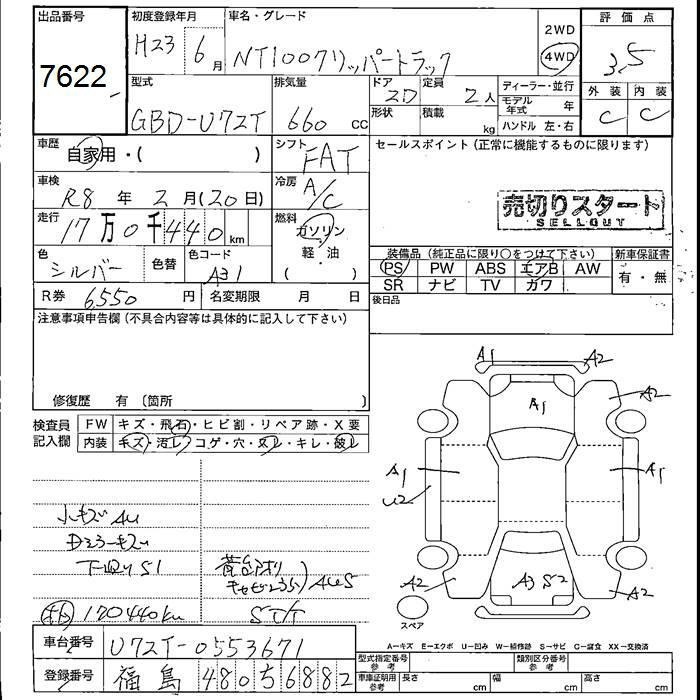 出品番号 初度登録年月 車名・グレード 2WD 評価点
7622 H23 6月 NT100クリッパートラック 4WD 3.5
型式 排気量 ドア 定員 ディーラー・並行 外装 内装
GBD-U72T 660 cc 2D 2人 モデル年式 年 C C
形状 積載 kg ハンドル 左・右
車歴 自家用・( ) シフト FAT セールスポイント (正常に機能するものに限ります)
車検 R8年 2月(20日) 冷房 A/C
売切りスタート
SELLOUT
走行 17万0千440km 燃料 ガソリン・軽・油 ( )
色 シルバー 色替 色コード A31
装備品 (純正品に限り○をつけて下さい) 新車保証書
PS PW ABS エアB AW 有・無
SR ナビ TV ガワ
R券 6550円 名変期限 月 日 後日品
注意事項申告欄 (不具合内容等は具体的に記入して下さい)
A1 A2
A2
A1
修復歴 有 (箇所 )
検査員記入欄 FW キズ・飛石・ヒビ割・リペア跡・X要
内装 キズ・汚レ・コゲ・穴・ヌレ・キレ・破レ
A1 A1
U2
小キズAU
下廻りS1
A2 A3 S2 A2
170440km
スペア
A=キズ E=エクボ U=凹み W=補修跡 S=サビ C=腐食 XX=交換済
車台番号 U72T-0553671
型式指定番号 参考 類別区分番号 参考
登録番号 福島 480 5 6882
車庫証明用 参考 長さ cm 幅 cm 高さ cm